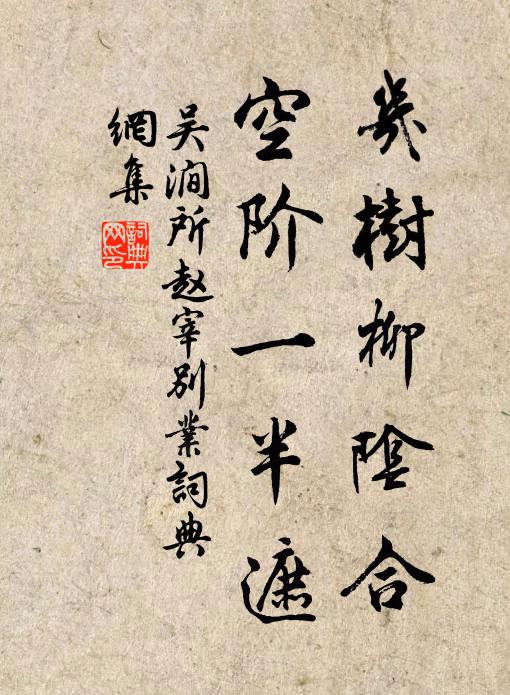 幾樹柳陰合
空阶一半遮
吴澗所赵宰别業詞典
網集
詞典
网印